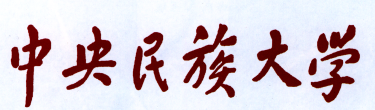 中央民族大学